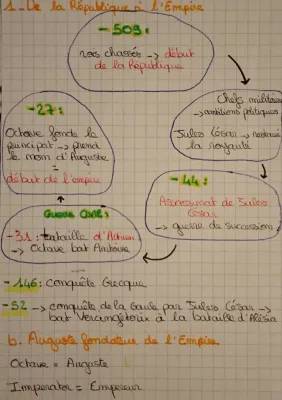 1_De la République à l'Empire
-509:
rois chassés → début
de la République
Chefs militaires
→ambitions politiques
Jules César →
la royauté
-44:
Assassinat de Jules
César
→ guerre de succession
Guerre Civile:
-31: bataille d'Actium
→ Octave bat Antoine
-27:
Octave fonde le
principat → prend
le nom d'Auguste
=
début de l'empire
-146: conquête Grecque
-52 → conquête de la Gaule par Jules César →
bat Vercingétorix à la bataille d'Alésia
b. Auguste fondateur de l'Empire
Octave = Auguste
Imperator = Empereur